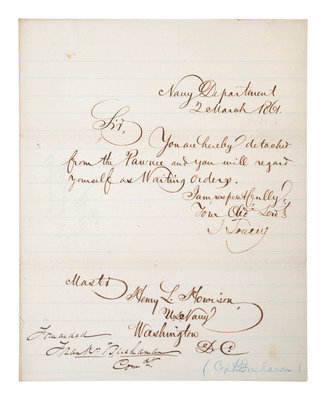 Navy Department
2 March 1861.
Sir,
You are hereby detached
from the Pawnee and you will regard
yourself as Waiting Orders.
I am respectfully,
Your Obt. Servt.
I. Toucey
Henry L. Howison
U.S. Navy
Washington
D.C.
Forwarded
Frank Buchanan
Comdt
(Capt Buchanan)